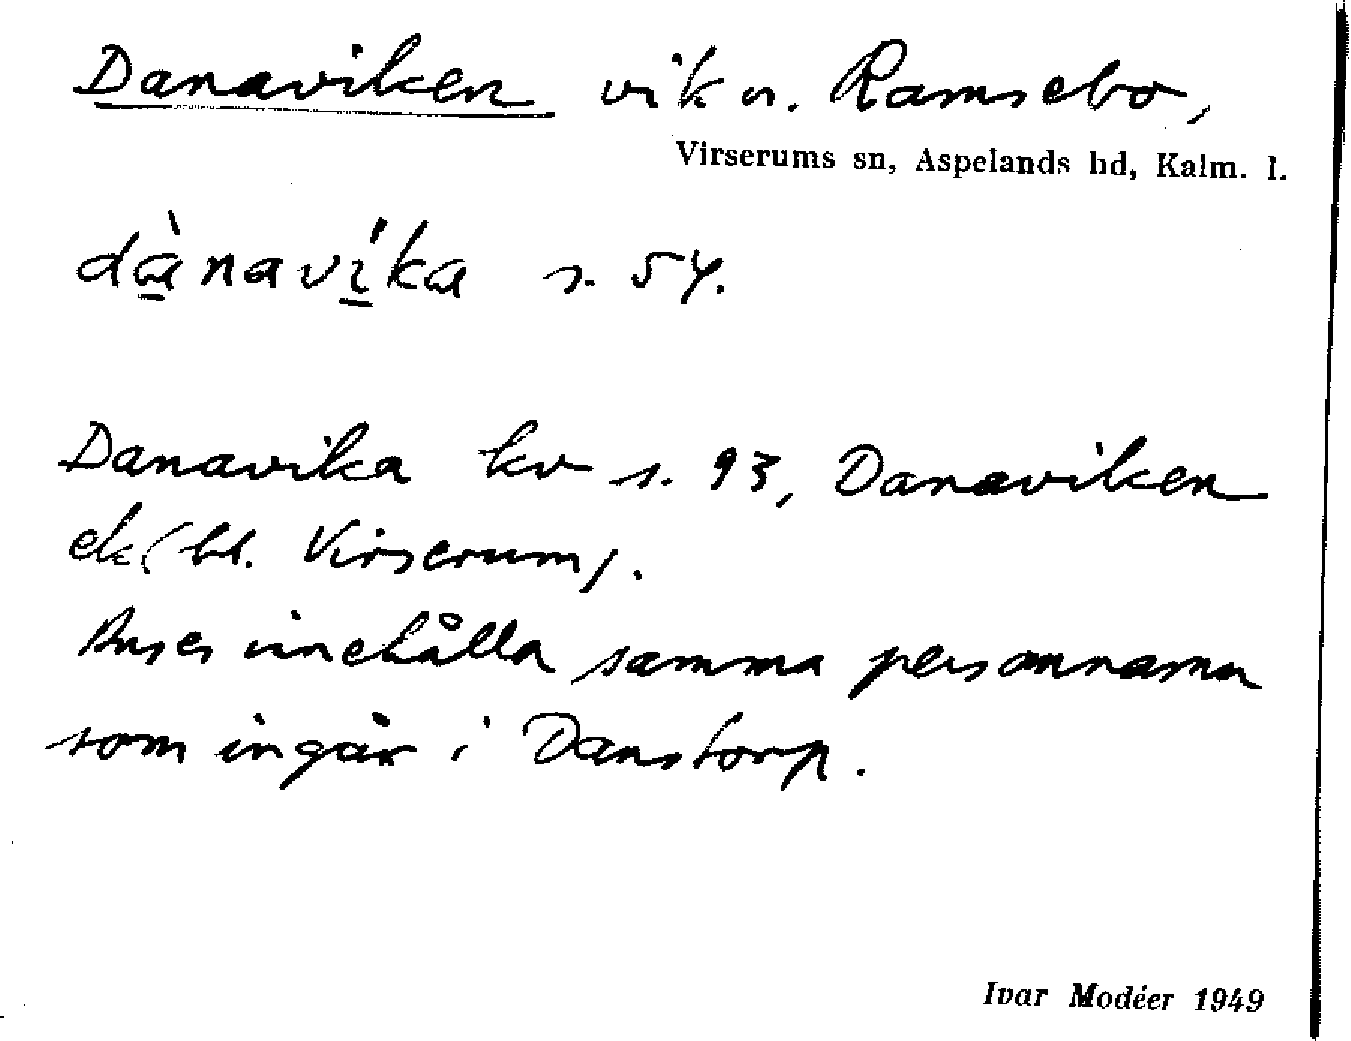 Danaviken vik n. Ramsebo,
Virserums sn, Aspelands hd, Kalm. l.
dànavíka s. 54.
Danavika kv s. 93, Danaviken
ek (bl. Virserum).
Anses innehålla samma personnamn
som ingår i Danstorp.
Ivar Modéer 1949